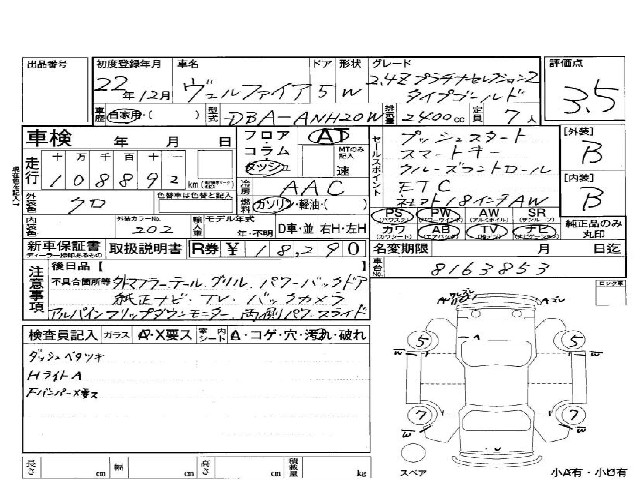 出品番号 初度登録年月 車名 ドア 形状 グレード 評価点
22年12月 ヴェルファイア 5 W 2.4Z プラチナセレクション2 タイプゴールド 3.5
車歴 自家用・( ) 型式 DBA-ANH20W 排気量 2400cc 定員 7人
車検 年 月 日 フロア・コラム ダッシュ AT MTのみ記入 速
セールスポイント プッシュスタート
スマートキー
クルーズコントロール
ETC
18インチAW
[外装] B
[内装] B
走行 十 万 千 百 十 一
108892 km
冷房 AAC
外装色 クロ 色替車は色替と記入
燃料 ガソリン・軽油・( )
PS PW AW SR
カワ AB TV ナビ
純正品のみ丸印
内装色 外装カラーNo. 202 輸入車 モデル年式 年・不明 D車・並 右H・左H
新車保証書 取扱説明書 R券 ¥18,290 名変期限 月 日迄
車台No. 8163853
注意事項 後日品【
不具合箇所等 外マフラーテール、グリル、パワーバックドア
純正ナビ、TV、バックカメラ
アルパインフリップダウンモニター、両側パワースライド
検査員記入 ガラス A・X要ス 室内シート A・コゲ・穴・汚れ・破れ
ダッシュベタツキ
HライトA
FバンパーX要ス
長さ cm 幅 cm 高さ cm 積載量 kg
5 5
7 7
W W
W W
スペア
小A有・小U有